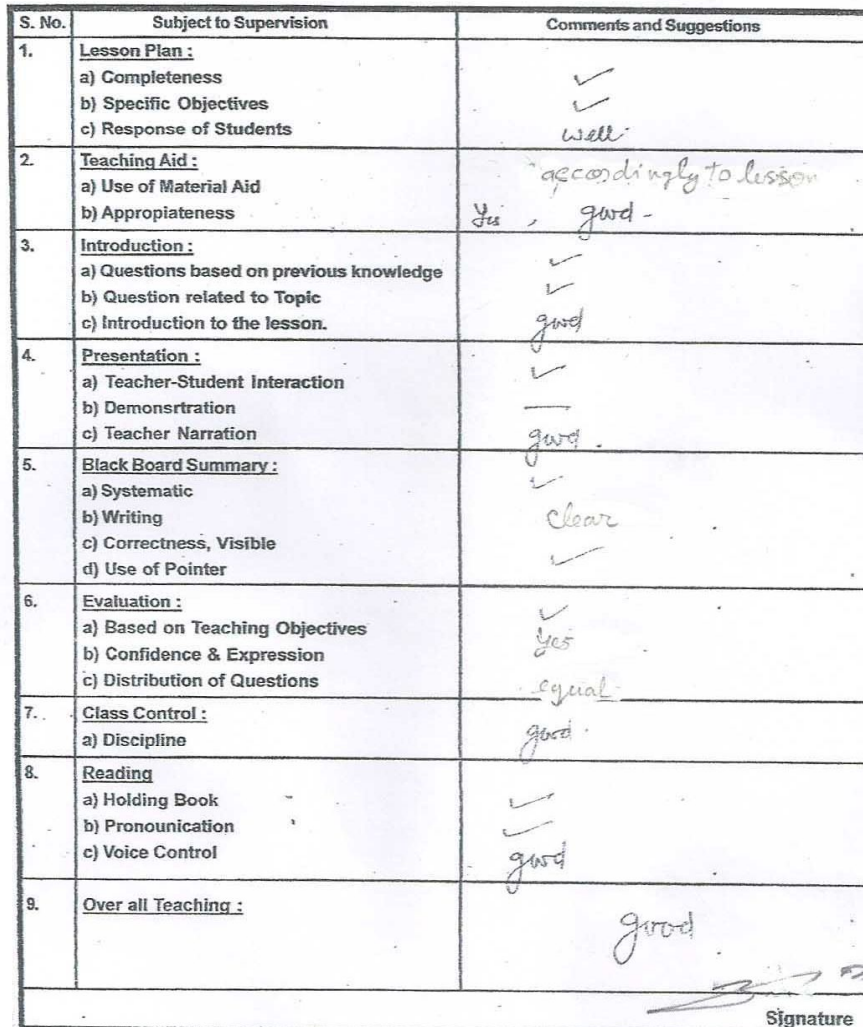 S. No. Subject to Supervision Comments and Suggestions
1. Lesson Plan :
a) Completeness ✓
b) Specific Objectives ✓
c) Response of Students well
2. Teaching Aid :
a) Use of Material Aid accordingly to lesson
b) Appropiateness Yes , good -
3. Introduction :
a) Questions based on previous knowledge ✓
b) Question related to Topic ✓
c) Introduction to the lesson. good
4. Presentation :
a) Teacher-Student Interaction ✓
b) Demonsrtration —
c) Teacher Narration good .
5. Black Board Summary :
a) Systematic ✓
b) Writing clear
c) Correctness, Visible
d) Use of Pointer ✓
6. Evaluation :
a) Based on Teaching Objectives ✓
b) Confidence & Expression Yes
c) Distribution of Questions equal
7. Class Control :
a) Discipline good .
8. Reading
a) Holding Book ✓
b) Pronounication ✓
c) Voice Control good
9. Over all Teaching : good
Signature